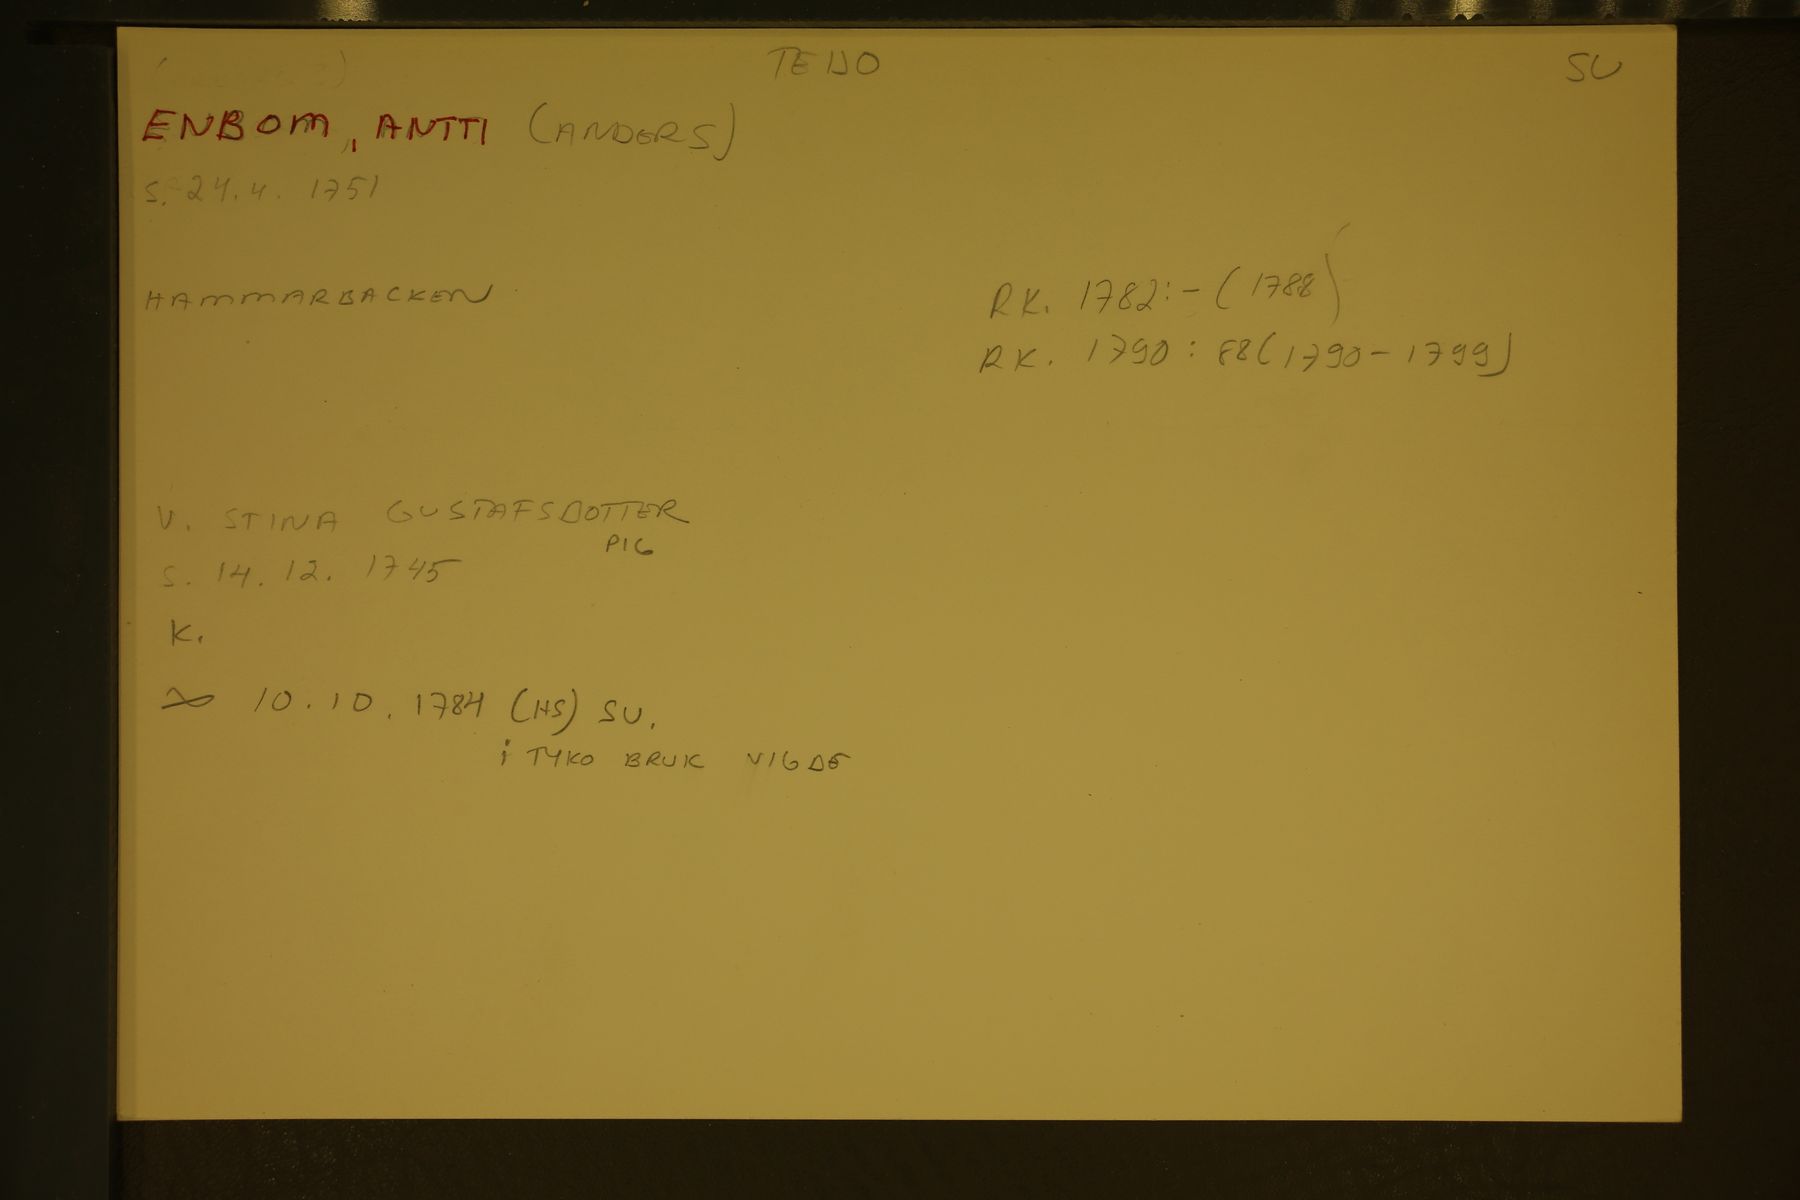 TEIJO SU
ENBOM, ANTTI (ANDERS)
S. 24.4. 1751
HAMMARBACKEN
RK. 1782:- (1788)
RK. 1790: 88 (1790-1799)
V. STINA GUSTAFSDOTTER
PIG
S. 14.12. 1745
K.
10.10.1784 (HS) SU.
i TYKO BRUK VIGDE